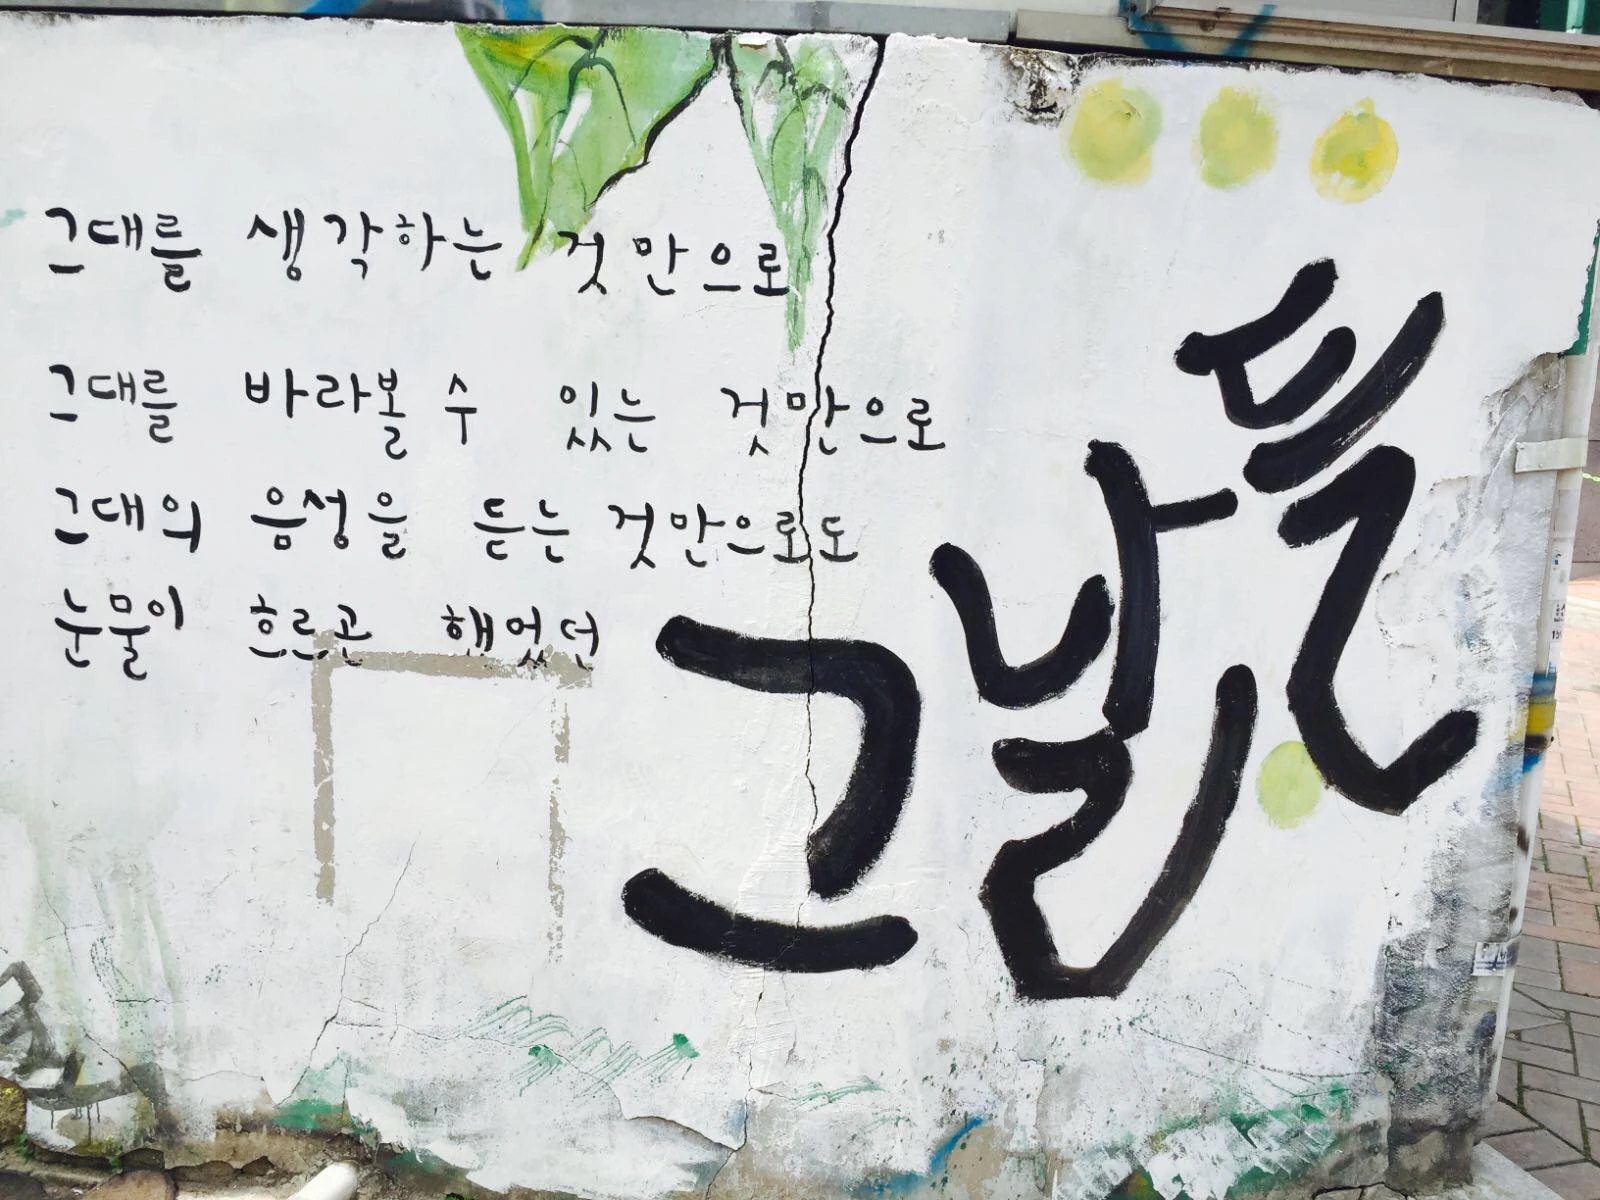 그대를 생각하는 것 만으로
그대를 바라볼 수 있는 것만으로
그대의 음성을 듣는 것만으로도
눈물이 흐르곤 했었던
그 날들